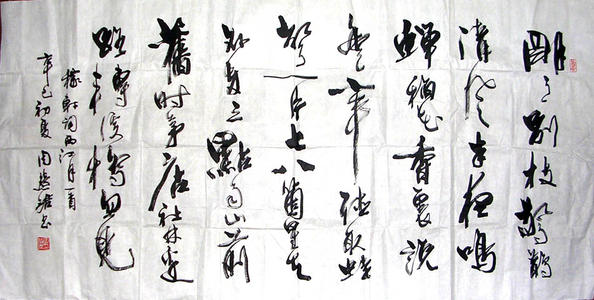 明月別枝驚鵲
清風半夜鳴
蟬稻花香裏說
豐年聽取蛙
聲一片七八箇星天
外兩三點雨山前
舊時茅店社林邊
路轉溪橋忽見
稼軒詞西江月一首
辛巳初夏周書